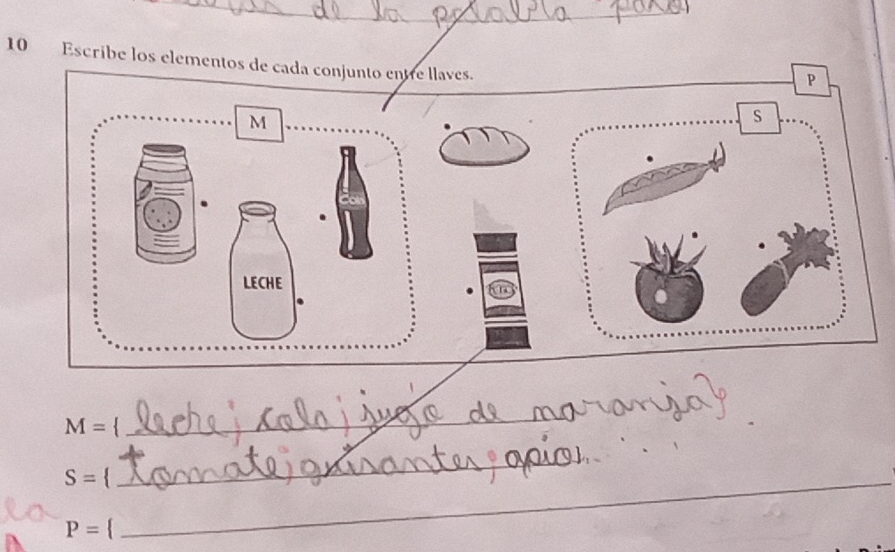 de la palabra para
10 Escribe los elementos de cada conjunto entre llaves.
P
M
S
LECHE
M = { leche; cola; jugo de naranja}
S = { tomate; guisantes; apio.
P = {